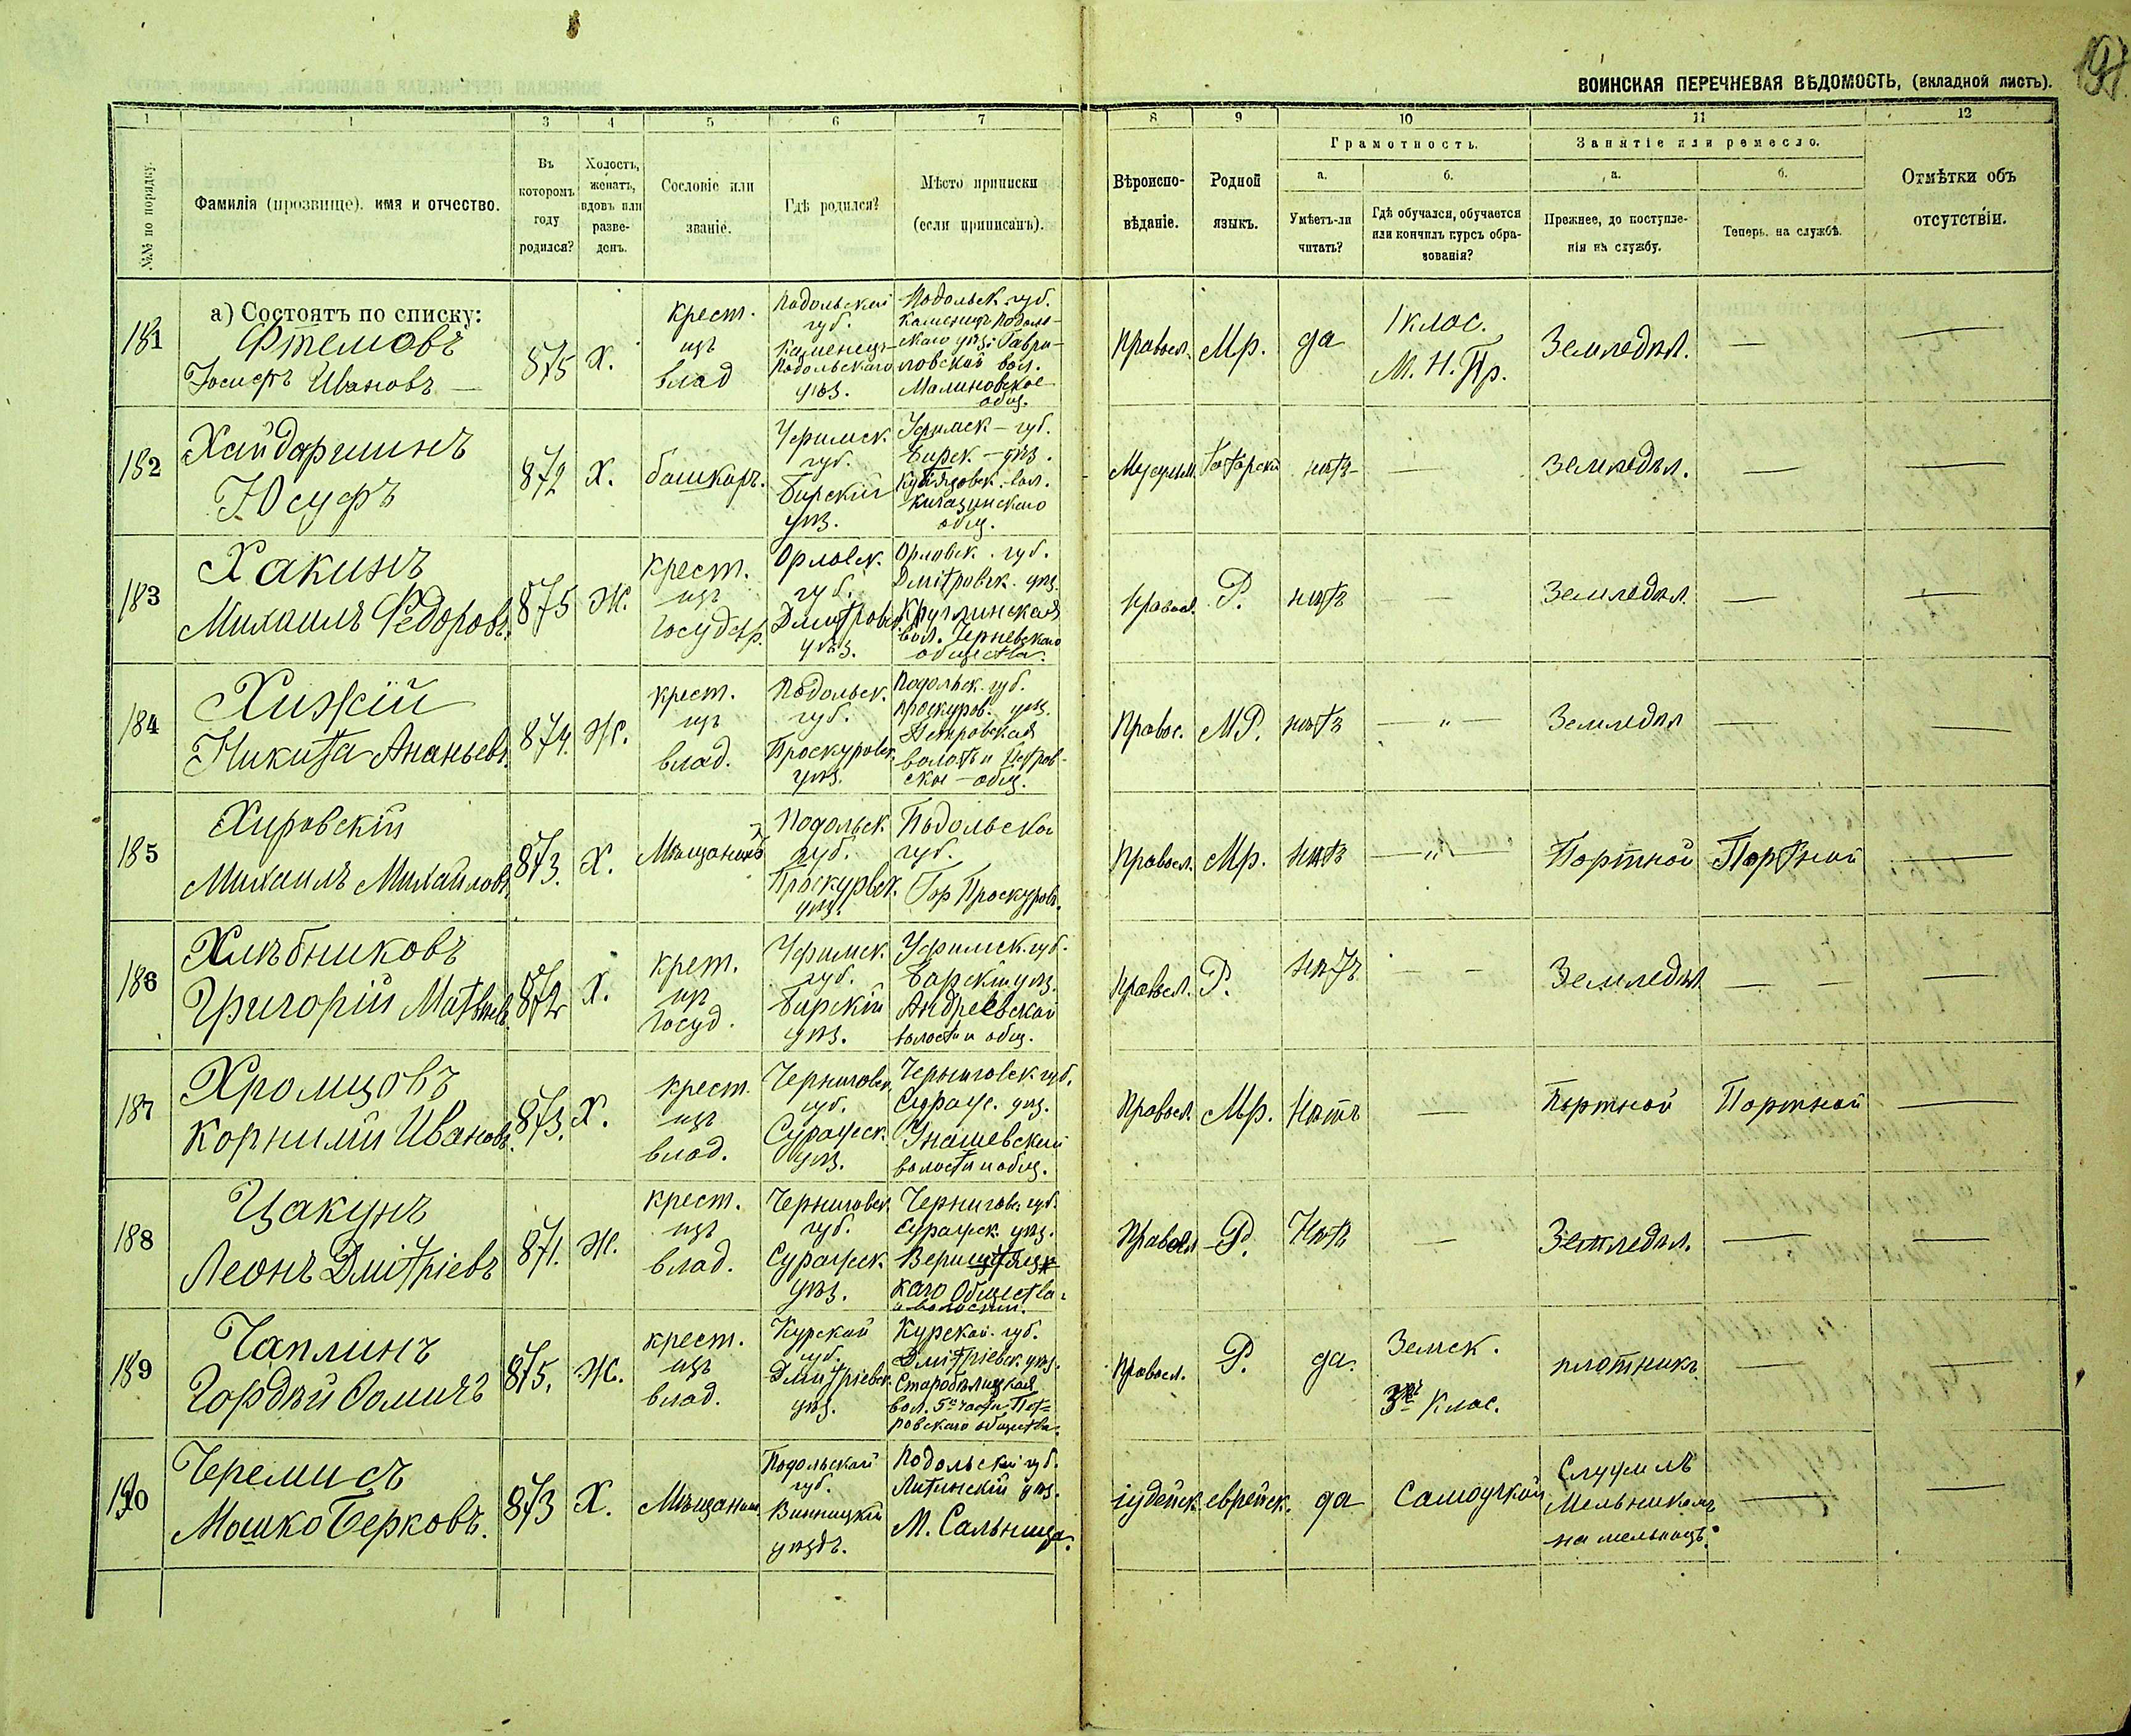 197
ВОИНСКАЯ ПЕРЕЧНЕВАЯ ВѢДОМОСТЬ, (вкладной листъ).
1 1 3 4 5 6 7 8 9 10 11 12
№№ по порядку.
Фамилія (прозвище), имя и отчество.
Въ которомъ году родился?
Холостъ, женатъ, вдовъ или разведенъ.
Сословіе или званіе.
Гдѣ родился?
Мѣсто приписки (если приписанъ).
Вѣроисповѣданіе.
Родной языкъ.
Грамотность.
а. Умѣетъ-ли читать?
б. Гдѣ обучался, обучается или кончилъ курсъ образованія?
Занятіе или ремесло.
а. Прежнее, до поступленія на службу.
б. Теперь, на службѣ.
Отмѣтки объ отсутствіи.
а) Состоятъ по списку:
181
Фтемовъ
Іосифъ Ивановъ —
875
Х.
крест.
цъ
влад
Подольской
губ.
Каменец-
Подольскаго
уѣз.
Подольск. губ.
Каменец Подоль-
скаго уѣз. Гаври-
ловской вол.
Малиновское
общ.
Правосл.
Мр.
да
1 клас.
М. Н. Пр.
Земледѣл.
—
—
182
Хайдаршинъ
Юсуфъ
872
Х.
башкоръ.
Уфимск.
губ.
Бирскій
уѣз.
Уфимск — губ.
Бирск — уѣз.
вол.
общ.
Мусульм.
Татарскій
нѣтъ
—
Земледѣл.
—
—
183
Хакинъ
Михаилъ Федоровъ.
875
Ж.
крест.
цъ
государ.
Орловск.
губ.
Дмитровск.
уѣз.
Орловск. губ.
Дмітровск. уѣз.
Круглинская
вол. Черневскаго
общества.
Правосл.
Р.
нѣтъ
—
Земледѣл.
—
—
184
Хижій
Никита Ананьевъ.
874.
Ж.
крест.
цъ
влад.
Подольск.
губ.
Проскуровск.
уѣз.
Подольск. губ.
Проскуров. уѣз.
Петровская
волость и Петров-
ское — общ.
Правос.
МР.
нѣтъ
— „ —
Земледѣл
—
—
185
Хировскій
Михаилъ Михайловъ.
873.
Х.
Мѣщанинъ
Подольск
губ.
Проскурвск.
уѣз.
Подольской
губ.
Гор Проскуровъ.
Правосл.
Мр.
нѣтъ
— „ —
Портной
Портной
—
186
Хлѣбниковъ
Григорій Матвѣевъ
872
Х.
крет.
цъ
госуд.
Уфимск.
губ.
Бирскій
уѣз.
Уфимск. губ.
Бирскій уѣз.
Андреевской
волости и общ.
Правосл.
Р.
нѣтъ
— —
Земледѣл
— —
—
187
Хромцовъ
Корнилій Ивановъ.
873.
Х.
крест.
цъ
влад.
Черниговск.
губ.
Суражск.
уѣз.
Черниговск губ.
Сураж. уѣз.
Унашевской
волости и общ.
Правосл.
Мр.
Нѣтъ
—
Портной
Портной
—
188
Цакунъ
Леонъ Дмітріевъ
871.
Ж.
крест.
цъ
влад.
Черниговск
губ.
Суражск.
уѣз.
Чернигов. губ.
Суражск. уѣз.
каго Общества
и волости.
Правосл
Р.
Нѣтъ
—
Земледѣл.
—
—
189
Чаплинъ
Гордѣй Фомичъ
875.
Ж.
крест.
цъ
влад.
Курской
губ.
Дмитріевск.
уѣз.
Курской. губ.
Дмітріевск уѣз.
Старобѣлицкая
вол. 5ᵒ части Пет-
ровскаго общества.
Правосл.
Р.
да.
Земск.
3хъ Клас.
плотникъ.
—
—
190
Черемисъ
Мошко Берковъ.
873
Х.
Мѣщанин.
Подольской
губ.
Винницкій
уѣздъ.
Подольской губ.
Литинскій уѣз.
М. Сальница.
іудейск.
еврейск.
да
Самоучкой
Служилъ
Мельникомъ
на мельницѣ.
—
—